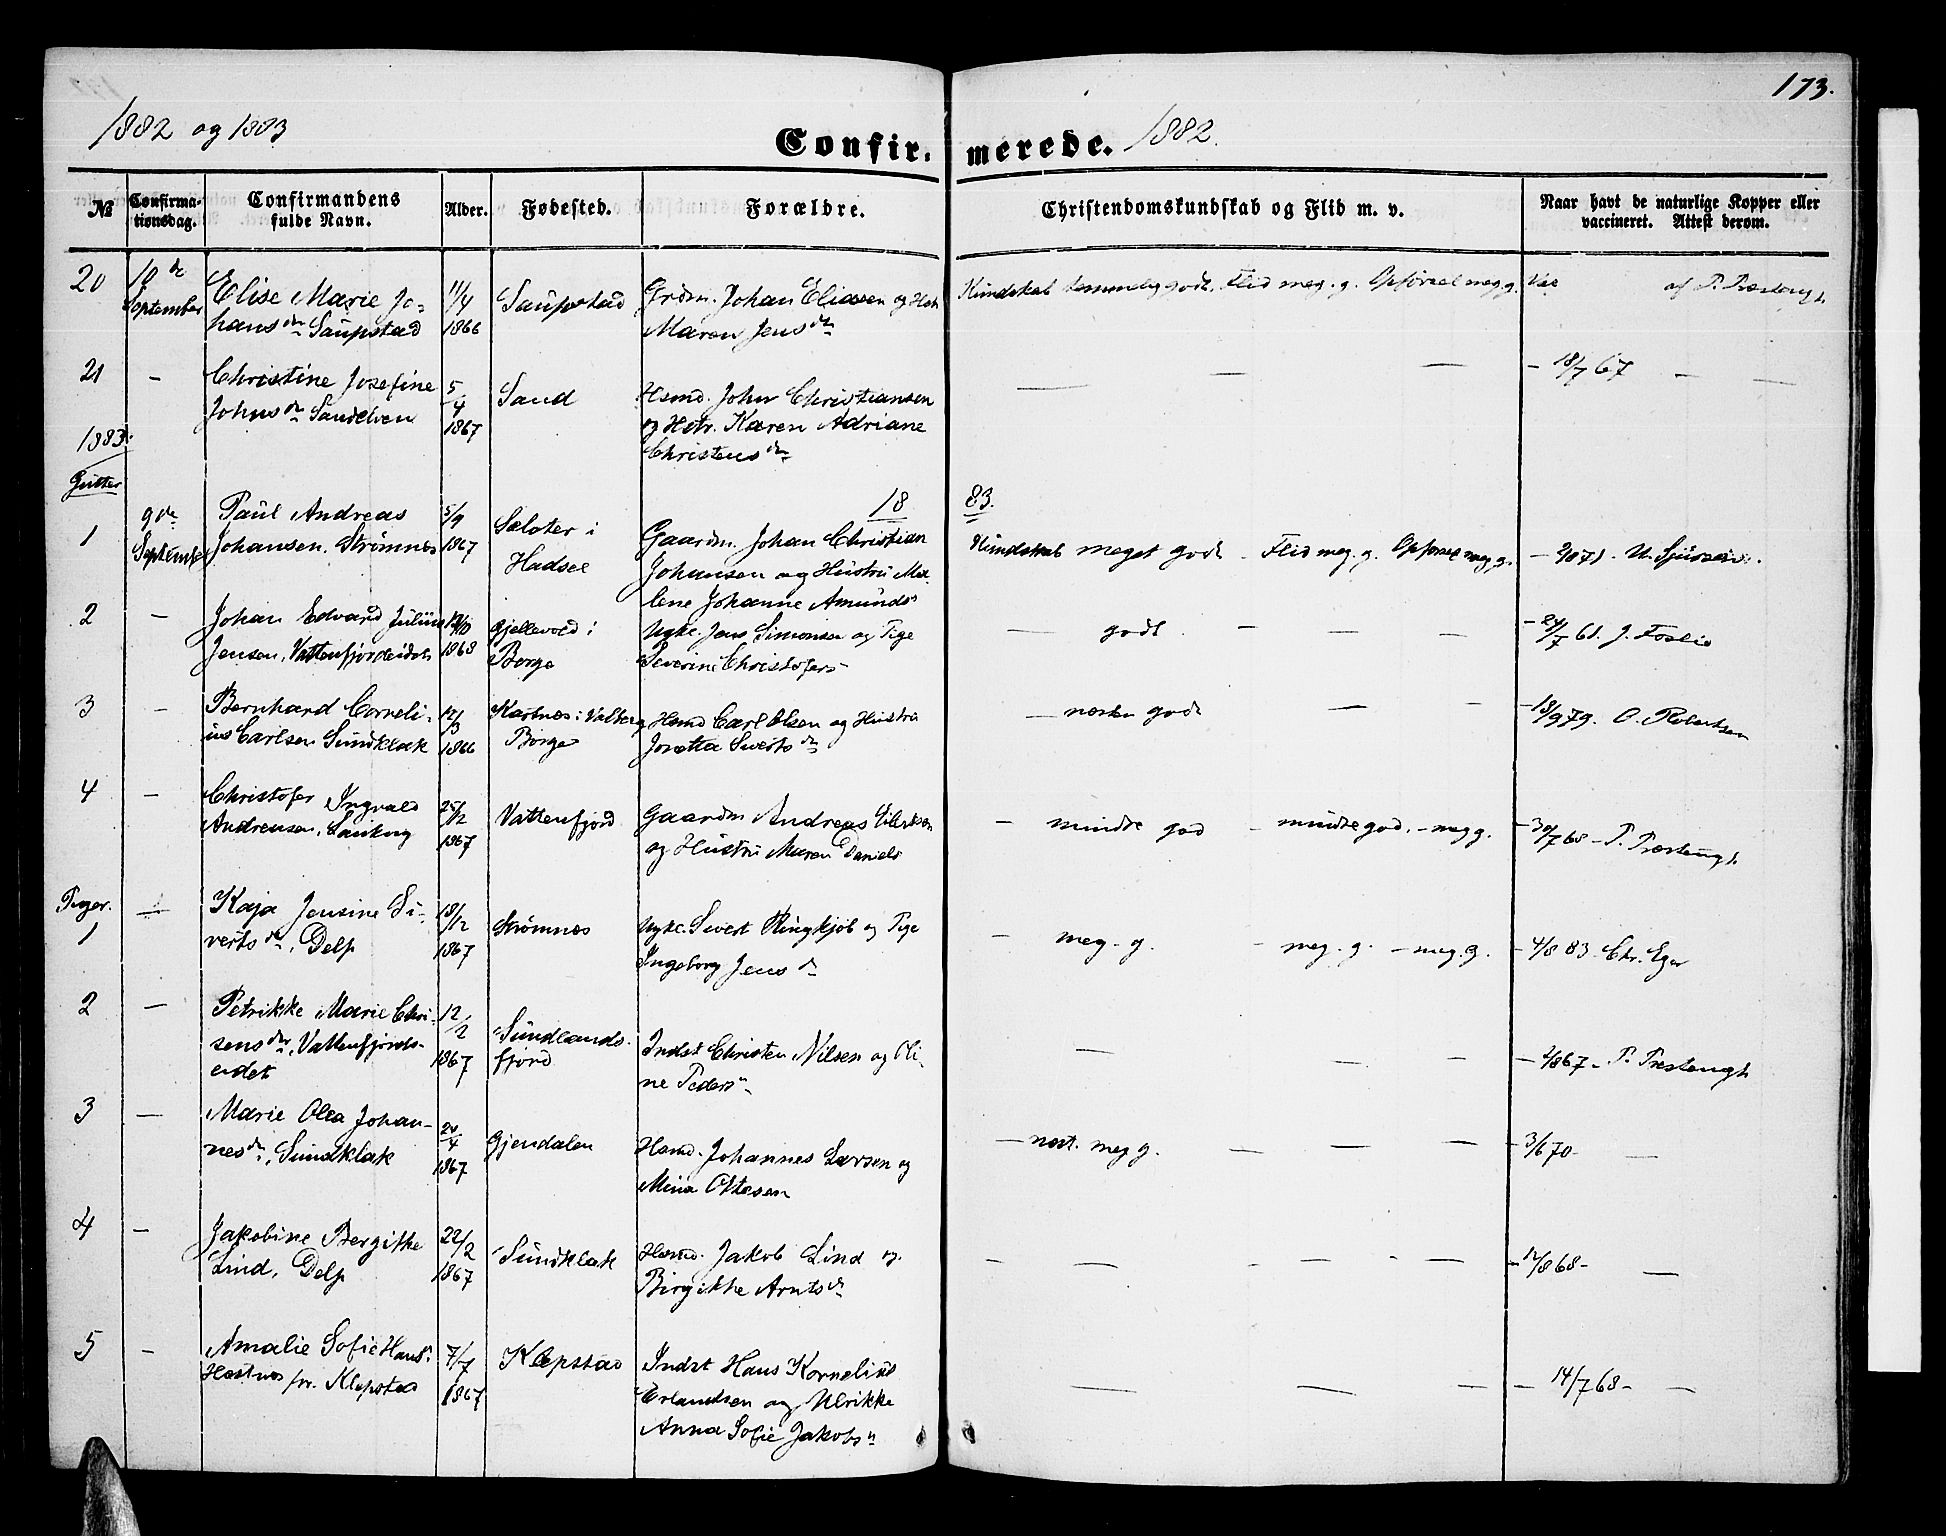 173.
1882 og 1883
Confir- merede. 1882.
№ Confirmationsdag. Confirmandens fulde Navn. Alder. Fødested. Forældre. Christendomskundskab og Flid m. v. Naar havt de naturlige Kopper eller vaccineret. Attest derom.
20 10de September Elise Marie Jo-
hansdtr Saupstad 11/4 1866 Saupstad Grdm. Johan Eliasen og Hstr
Maren Jensdtr Kundskab temmelig godt. Flid meg. g. Opførsel meg g. Vac af P. Præstengh
21 — Christine Josefine
Johnsdtr Sandelven 5/4 1867 Sand Hsmd. John Christiansen
og Hstr. Karen Adriane
Christensdtr — — — — 18/7 67 — —
1883.
Gutter
18 83.
1 9de September Paul Andreas
Johansen. Strømnes 5/9 1867 Sæloter i
Hadsel Gaardm. Johan Christian
Johansen og Hustru Ma-
lene Johanne Amunds" Kundskab meget godt - Flid meg. g. Opførsel meg g.
2 — Johan Edvard Julius
Jensen, Vattenfjordeidet 1868 Gjellevold i
Borge Ugke. Jens Simonsen og Pige
Severine Christofers- — godt. — — — J. Foslie
3 — Bernhard Corneli-
us Carlsen Sundklak 12/3 1866 i Valberg
Borge Hsmd Carl Olsen og Hustru
Joretta Sivertsdtr — næsten godt — — - 18/9 79. O. Robertsen
4 — Christofer Ingvald
Andreasen, 25/2 1867 Vattenfjord Gaardm Andreas
og Hustru Maren Daniels — mindre god - mindre god. - meg g. - 30/7 68 - P. Præstengh
Piger.
1 — Kaja Jensine Si-
vertsdtr, Delp 18/12 1867 Strømnes Ugke. Sivert Ringkjøb og Pige
Ingeborg Jensdtr — meg. g. - meg. g. - meg. g. - 4/8 83. Chr. Eger
2 — Petrikke Marie Chri-
sensdtr, Vattenfjords-
eidet 12/2 1867 Sundlands-
fjord Indst Christen Nilsen og Oli-
ne Peders" — — — - 2/8 67 - P. Præstengh
3 — Marie Olea Johan-
nesdtr, Sundklak 24/4 1867 Gjendalen Hsmd. Johannes Larsen og
Mina Ottesen — næst. meg g. — — — - 3/6 70 - —
4 — Jakobine Bergithe
Lind, Delp 22/2 1867 Sundklak Hsmd. Jakob Lind og
Birgikke Arntsdtr — — - — - — - 12/8 68 - —
5 — Amalie Sofie Hans"
Hestnes fr. Klepstad 7/7 1867 Klepstad Indst Hans Kornelius
Erlandsen og Ulrikke
Anna Sofie Jakobs" — — — — 14/7 68 - —